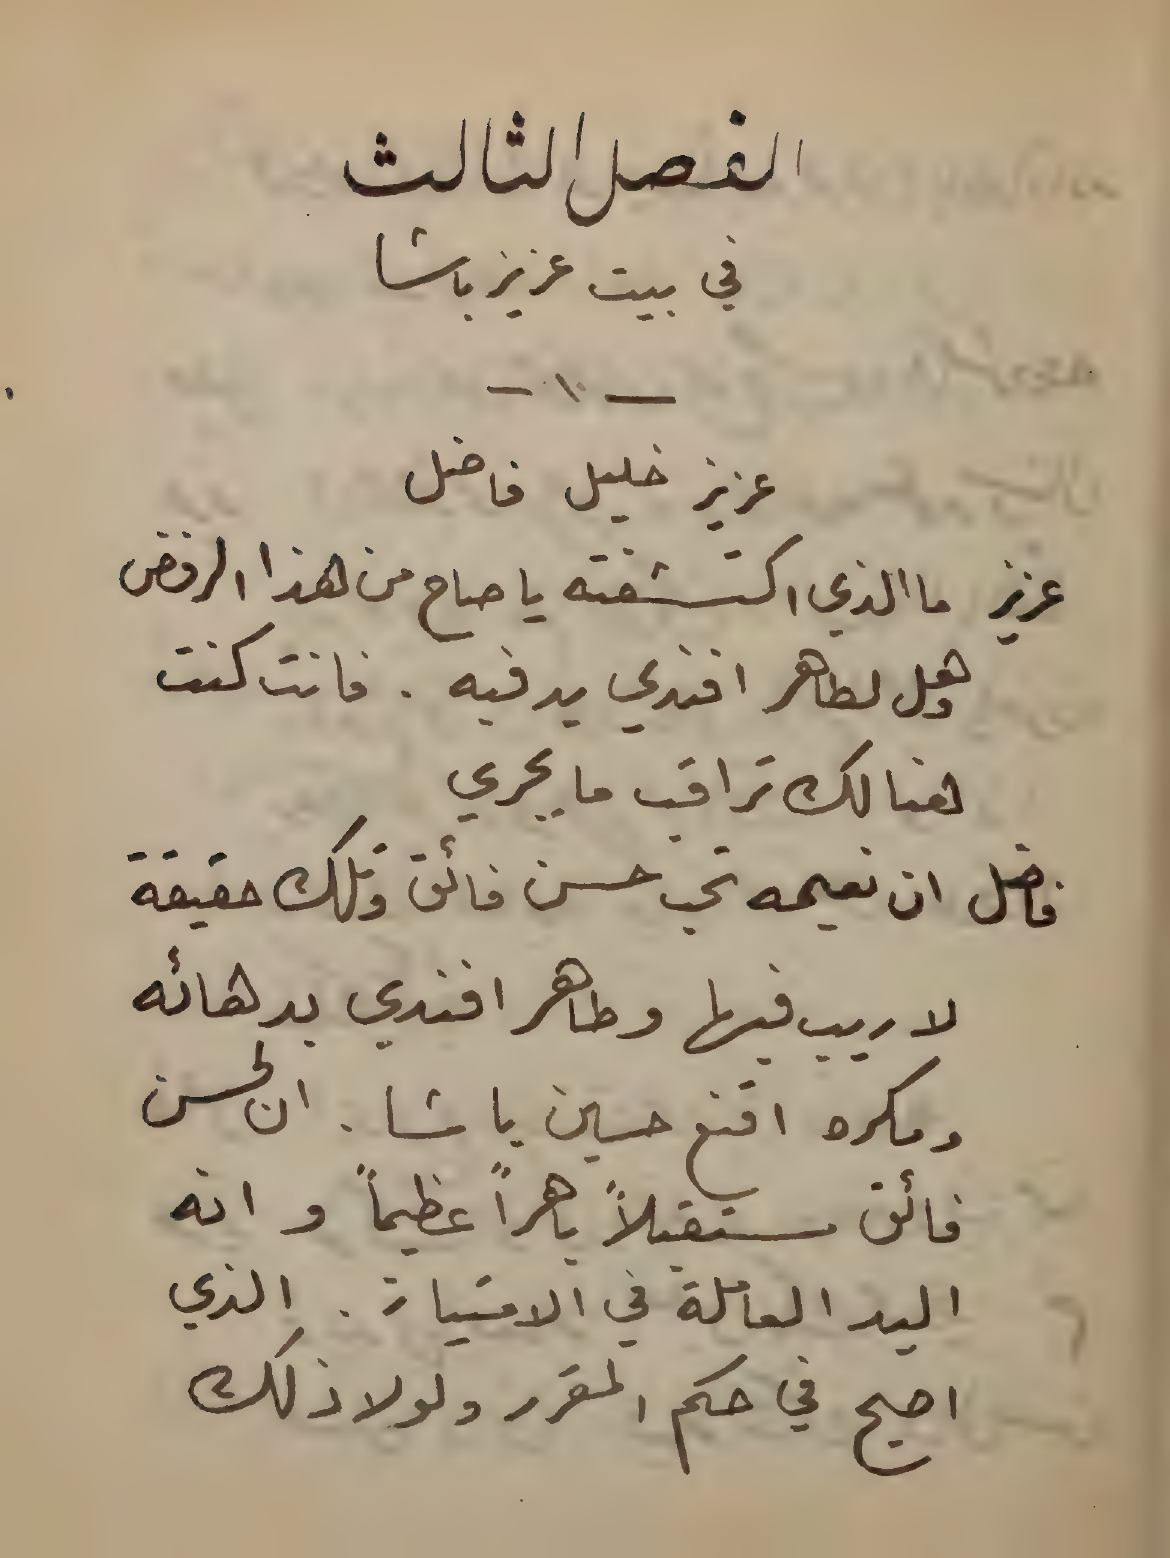 الفصل الثالث
في بيت عزيز باشا
— ١ —
عزيز خليل فاضل
عزيز ما الذي اكتشفته يا صاح من هذا الرفض
وهل لطاهر افندي يد فيه . فانت كنت
هنالك تراقب ما يجري
فاضل ان نعيمه تحب حسن فائق وتلك حقيقة
لا ريب فيها وطاهر افندي بدهائه
ومكره اقنع حسين باشا . ان لحسن
فائق مستقبلاً باهراً عظيماً و انه
اليد العاملة في الامتياز . الذي
اصبح في حكم المقرر ولولا ذلك